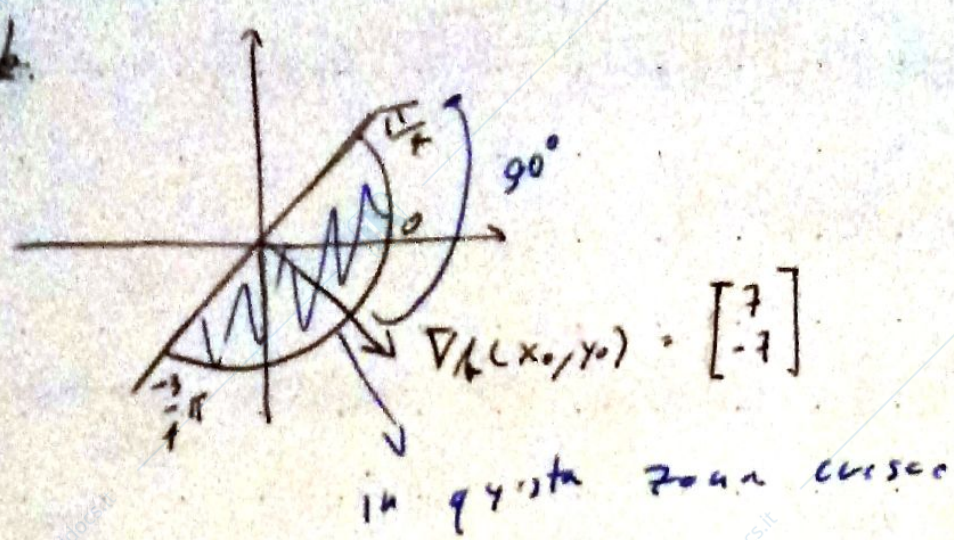 b.
π/4
90°
0
∇h(x₀,y₀) = [7 -7]
-3/4 π
in questa zona cresce